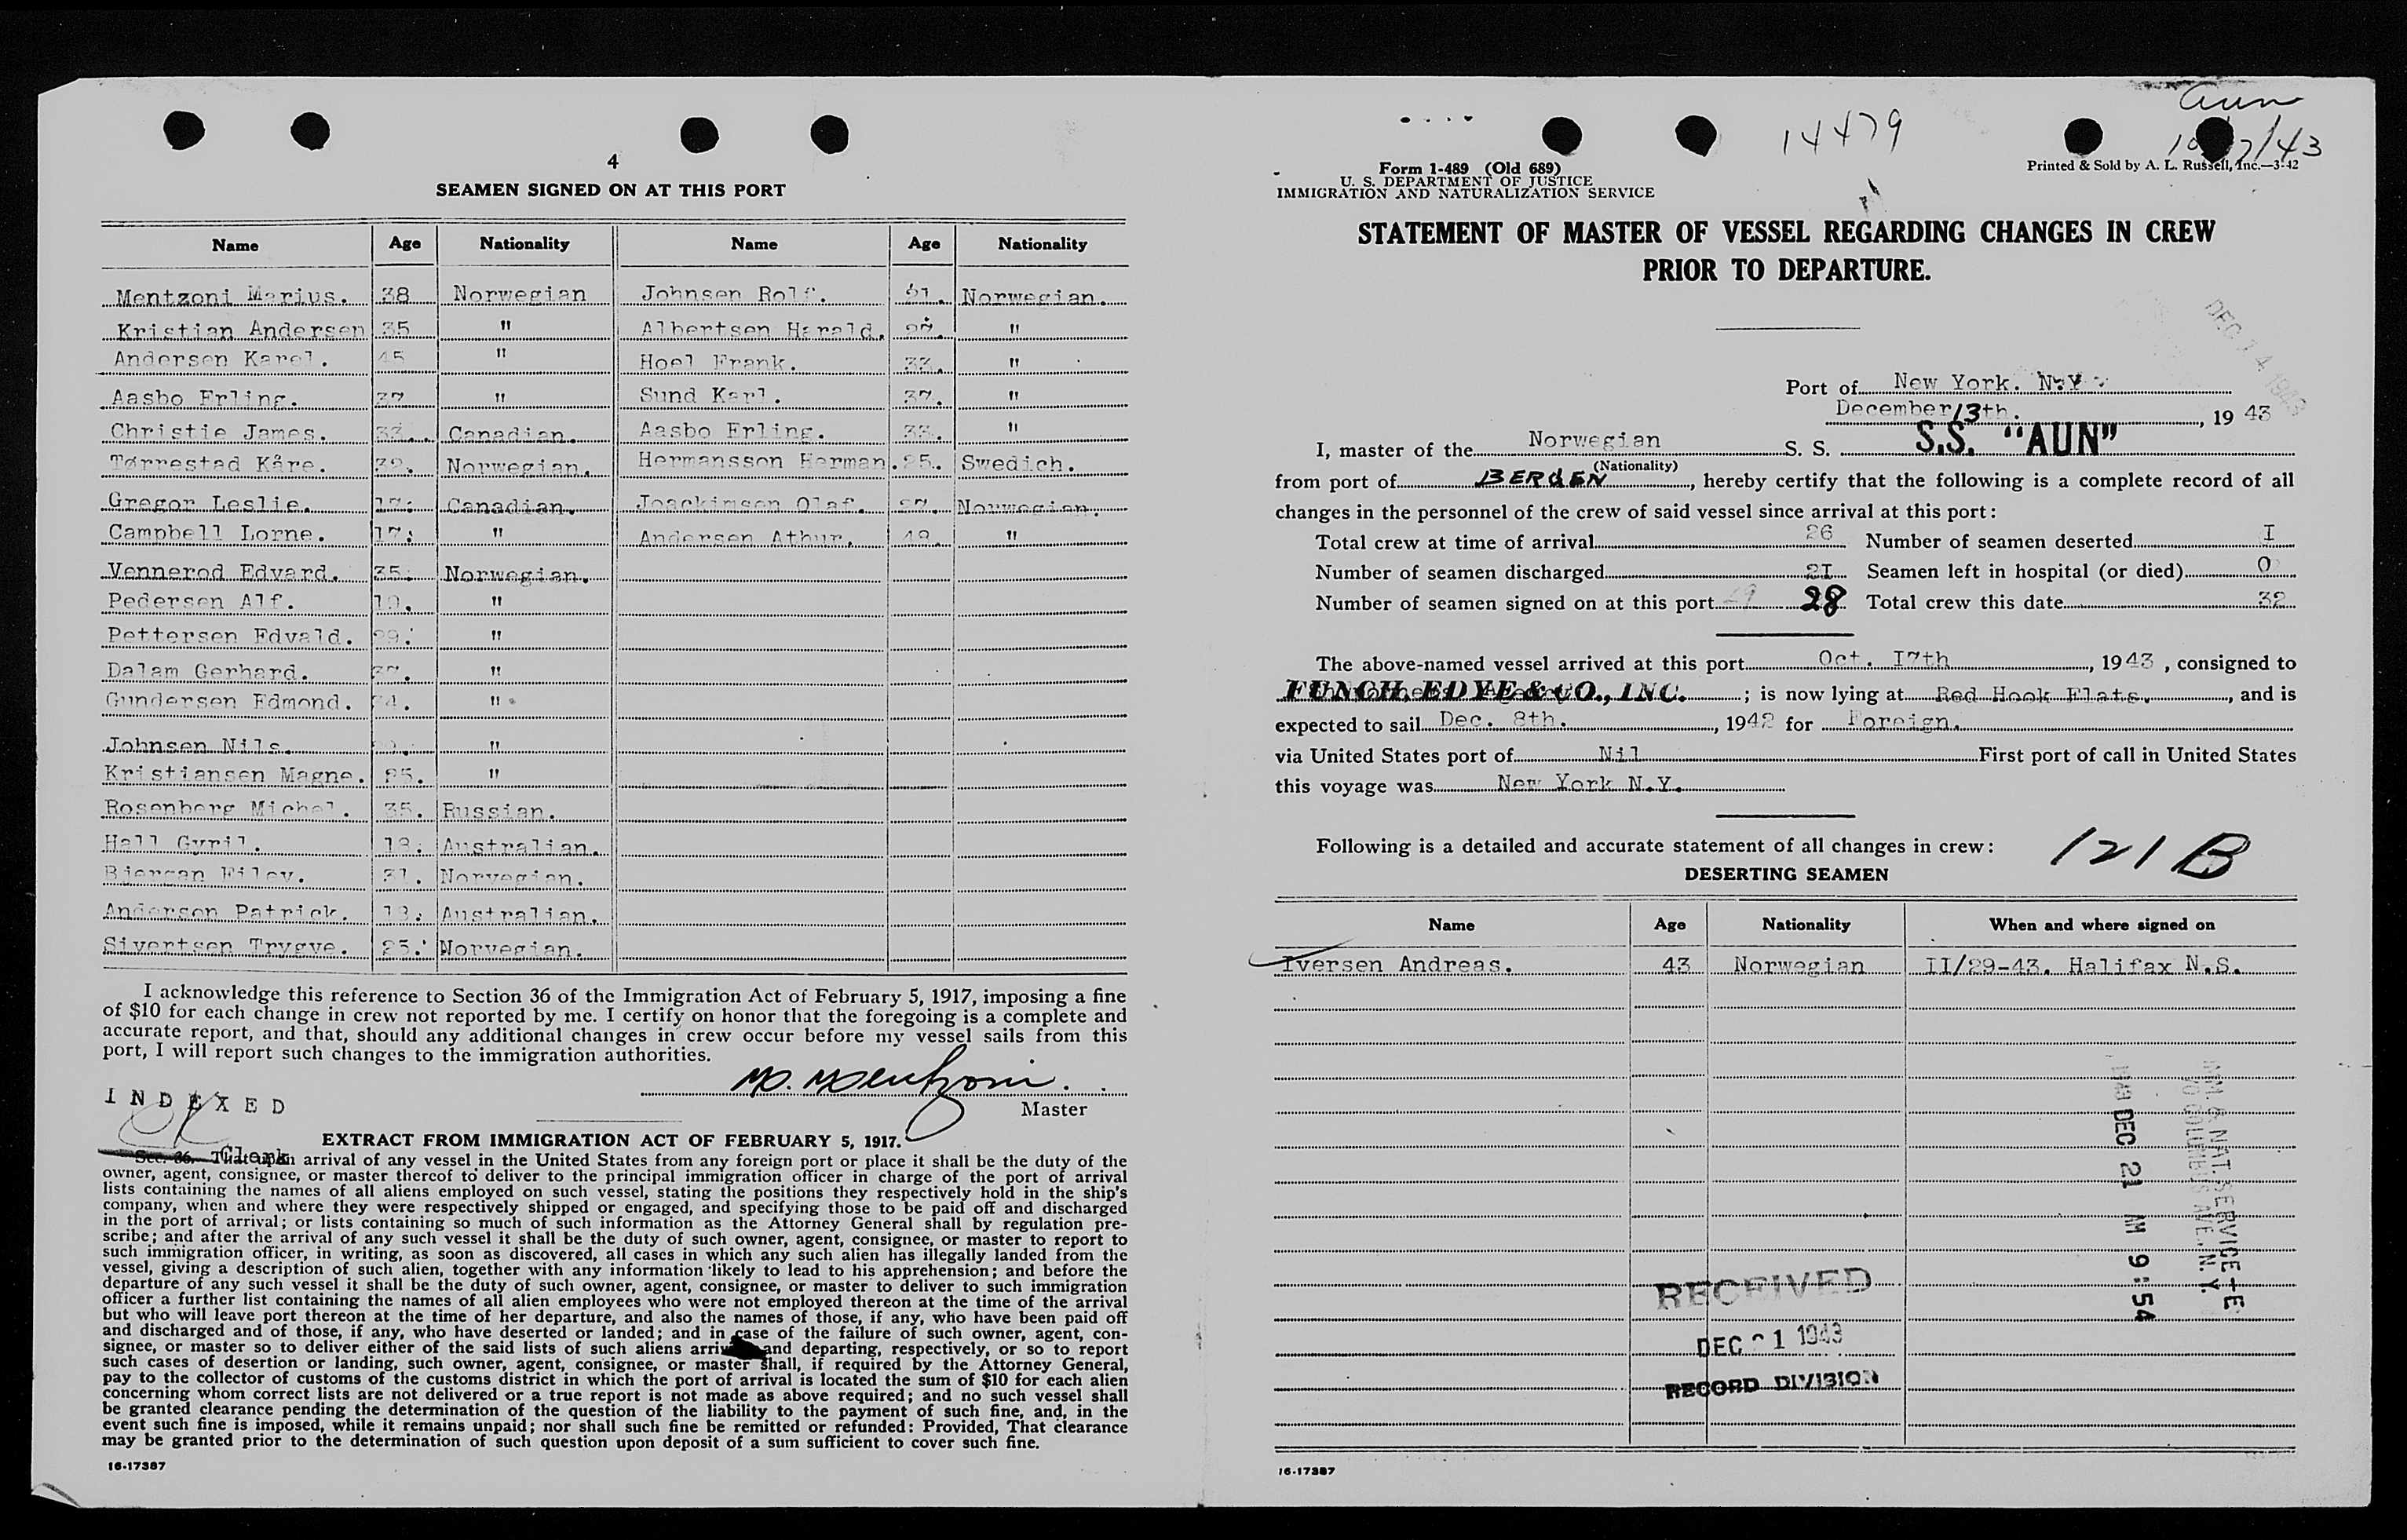 4
SEAMEN SIGNED ON AT THIS PORT
Name Age Nationality Name Age Nationality
Mentzoni Marius. 38 Norwegian Johnsen Rolf. Norwegian.
Kristian Andersen 35 " Albertsen Harald. "
Andersen Karol. 45 " Hoel Frank. 33. "
Aasbo Erling. 37 " Sund Karl. 37. "
Christie James. 33. Canadian. Aasbo Erling. 33. "
Tørrestad Kåre. 32. Norwegian. Hermansson Herman. 25. Swedich.
Gregor Leslie. 17. Canadian. Joackimsen Olaf. 27. Norwegian.
Campbell Lorne. 17. " Andersen Athur. "
Vennerod Edvard. 35. Norwegian.
Pedersen Alf. 19. "
Pettersen Edvald. 29. "
Dalam Gerhard. "
Gundersen Edmond. "
Johnsen Nils. "
Kristiansen Magne. 25. "
Rosenberg Michel. 35. Russian.
Hall Cyril. Australian.
Norvegian.
Anderson Patrick. Australian.
Sivertsen Trygve. 25. Norvegian.
I acknowledge this reference to Section 36 of the Immigration Act of February 5, 1917, imposing a fine
of $10 for each change in crew not reported by me. I certify on honor that the foregoing is a complete and
accurate report, and that, should any additional changes in crew occur before my vessel sails from this
port, I will report such changes to the immigration authorities.
M. Mentzoni.
Master
INDEXED
Clerk
EXTRACT FROM IMMIGRATION ACT OF FEBRUARY 5, 1917.
Sec. 36. That upon arrival of any vessel in the United States from any foreign port or place it shall be the duty of the
owner, agent, consignee, or master thereof to deliver to the principal immigration officer in charge of the port of arrival
lists containing the names of all aliens employed on such vessel, stating the positions they respectively hold in the ship's
company, when and where they were respectively shipped or engaged, and specifying those to be paid off and discharged
in the port of arrival; or lists containing so much of such information as the Attorney General shall by regulation pre-
scribe; and after the arrival of any such vessel it shall be the duty of such owner, agent, consignee, or master to report to
such immigration officer, in writing, as soon as discovered, all cases in which any such alien has illegally landed from the
vessel, giving a description of such alien, together with any information likely to lead to his apprehension; and before the
departure of any such vessel it shall be the duty of such owner, agent, consignee, or master to deliver to such immigration
officer a further list containing the names of all alien employees who were not employed thereon at the time of the arrival
but who will leave port thereon at the time of her departure, and also the names of those, if any, who have been paid off
and discharged and of those, if any, who have deserted or landed; and in case of the failure of such owner, agent, con-
signee, or master so to deliver either of the said lists of such aliens arriving and departing, respectively, or so to report
such cases of desertion or landing, such owner, agent, consignee, or master shall, if required by the Attorney General,
pay to the collector of customs of the customs district in which the port of arrival is located the sum of $10 for each alien
concerning whom correct lists are not delivered or a true report is not made as above required; and no such vessel shall
be granted clearance pending the determination of the question of the liability to the payment of such fine, and, in the
event such fine is imposed, while it remains unpaid; nor shall such fine be remitted or refunded: Provided, That clearance
may be granted prior to the determination of such question upon deposit of a sum sufficient to cover such fine.
16-17387
Aun
14479
Form 1-489 (Old 689)
U. S. DEPARTMENT OF JUSTICE
IMMIGRATION AND NATURALIZATION SERVICE
Printed & Sold by A. L. Russell, Inc.—3-42
STATEMENT OF MASTER OF VESSEL REGARDING CHANGES IN CREW
PRIOR TO DEPARTURE.
DEC 24 1943
Port of New York. N.Y
December 13th., 19 43
I, master of the Norwegian S. S. S.S. "AUN"
(Nationality)
from port of BERGEN, hereby certify that the following is a complete record of all
changes in the personnel of the crew of said vessel since arrival at this port:
Total crew at time of arrival 26 Number of seamen deserted I
Number of seamen discharged 2I Seamen left in hospital (or died) 0
Number of seamen signed on at this port 28 Total crew this date 32
The above-named vessel arrived at this port Oct. I7th, 1943, consigned to
FUNCH, EDYE & CO., INC.; is now lying at Red Hook Flats., and is
expected to sail Dec. 8th., 1942 for Foreign.
via United States port of Nil First port of call in United States
this voyage was New York N.Y.
Following is a detailed and accurate statement of all changes in crew:
121 B
DESERTING SEAMEN
Name Age Nationality When and where signed on
Iversen Andreas. 43 Norwegian II/29-43. Halifax N.S.
1943 DEC 21 M 9:54
IMM. & NAT. SERVICE-E
70 COLUMBUS AVE., N. Y.
RECEIVED
DEC 21 1943
RECORD DIVISION
16-17387